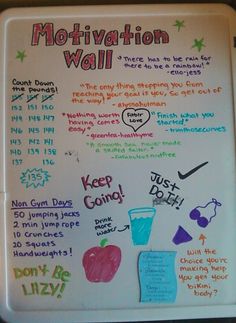 Motivation
Wall
"There has to be rain for
there to be a rainbow!"
-ello-jess
Count Down
the Pounds!
"The only thing stopping you from
reaching your goal is you, so get out
of the way!"
153 151 150
149 147 146
146 145 144
143 142 141
140 139 138
137 136
135
"Nothing worth
having comes
easy"
-greentea-healthyme
Fitblr
Love
"Finish what you
started"
-trimthosecurves
"A smooth sea never made
a skilled sailor."
-fatabulousandfree
Keep
Going!
Just
Do It!
Non Gym Days
50 jumping jacks
2 min jump rope
10 crunches
20 squats
Handweights!
Drink
more
Water
Don't Be
Lazy!
Will the
choice you're
making help
you get your
bikini
body?